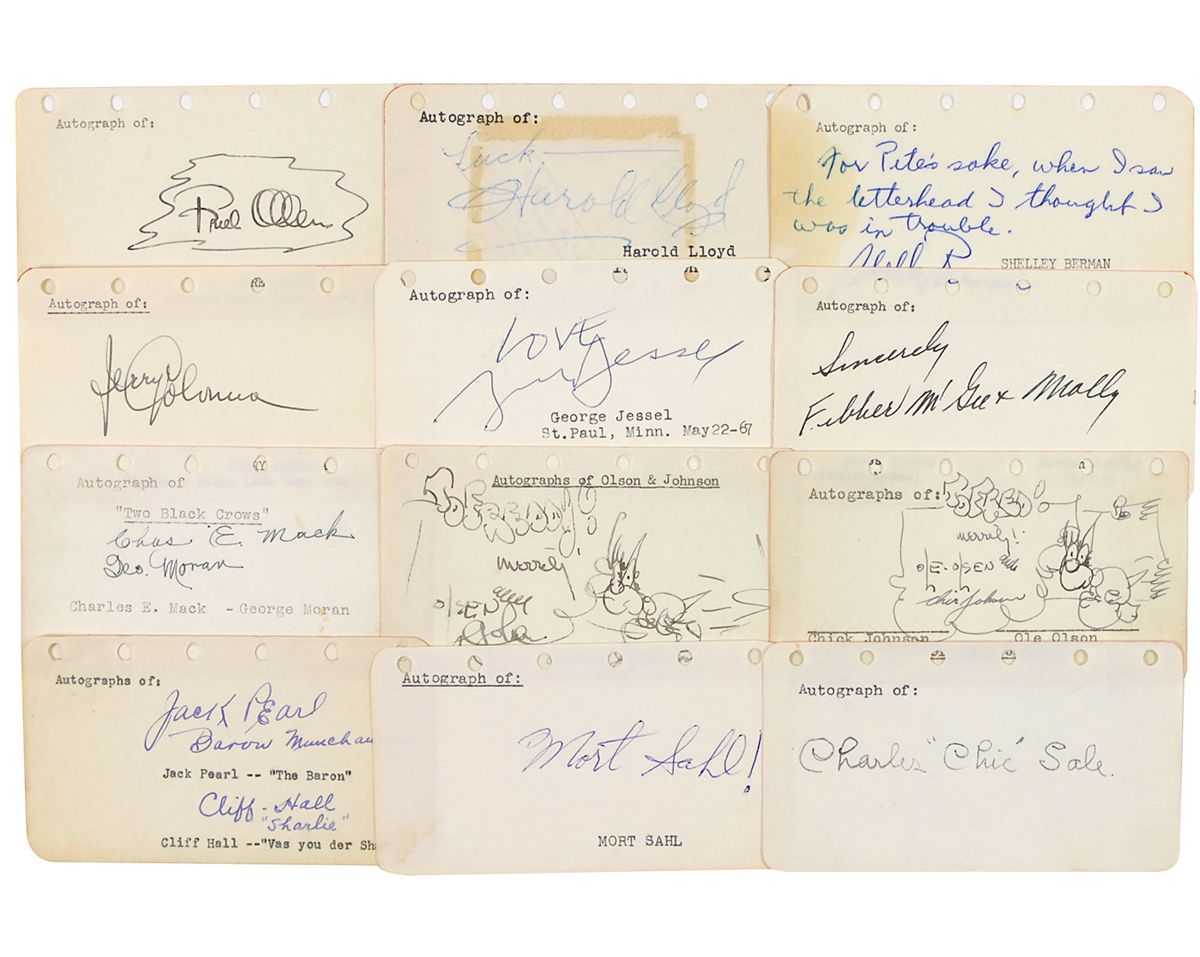 Autograph of:
Autograph of:
Luck
Harold Lloyd
Harold Lloyd
Autograph of:
For Pete's sake, when I saw
the letterhead I thought I
was in trouble.
SHELLEY BERMAN
Autograph of:
Jerry Colonna
Autograph of:
LOVE
Jessel
George Jessel
St.Paul, Minn. May 22-67
Autograph of:
Sincerely
Fibber McGee & Molly
Autograph of
"Two Black Crows"
Chas E. Mack
Geo. Moran
Charles E. Mack - George Moran
Autographs of Olson & Johnson
TO FREDDY!
merrily
OLSEN and
Autographs of:
TO FRED!
merrily!
OLE OLSEN and
Chic Johnson
Chick Johnson Ole Olson
Autographs of:
Jack Pearl
Baron Munchau
Jack Pearl -- "The Baron"
Cliff Hall
"Sharlie"
Cliff Hall --"Vas you der Sh
Autograph of:
Mort Sahl!
MORT SAHL
Autograph of:
Charles "Chic" Sale.